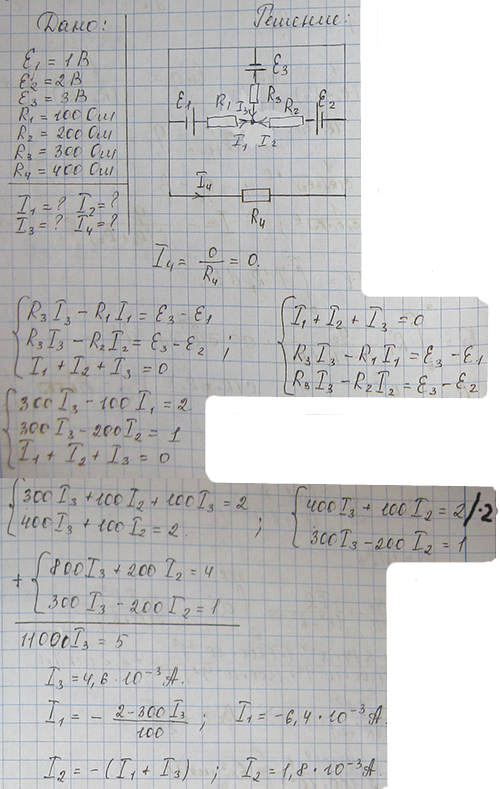 Дано:
Ɛ1 = 1 В
Ɛ2 = 2 В
Ɛ3 = 3 В
R1 = 100 Ом
R2 = 200 Ом
R3 = 300 Ом
R4 = 400 Ом
I1 = ? I2 = ?
I3 = ? I4 = ?
Решение:
Ɛ3
Ɛ1 R1 I3 R3 R2 Ɛ2
I1 I2
I4
R4
I4 = 0/R4 = 0.
R3I3 - R1I1 = Ɛ3 - Ɛ1
R3I3 - R2I2 = Ɛ3 - Ɛ2 ;
I1 + I2 + I3 = 0
I1 + I2 + I3 = 0
R3I3 - R1I1 = Ɛ3 - Ɛ1
R3I3 - R2I2 = Ɛ3 - Ɛ2
300I3 - 100I1 = 2
300I3 - 200I2 = 1
I1 + I2 + I3 = 0
300I3 + 100I2 + 100I3 = 2
400I3 + 100I2 = 2. ;
400I3 + 100I2 = 2 /·2
300I3 - 200I2 = 1
+ 800I3 + 200I2 = 4
300I3 - 200I2 = 1
11000I3 = 5
I3 = 4,6·10⁻³ А.
I1 = - (2 - 300I3)/100 ; I1 = -6,4·10⁻³ А.
I2 = -(I1 + I3) ; I2 = 1,8·10⁻³ А.